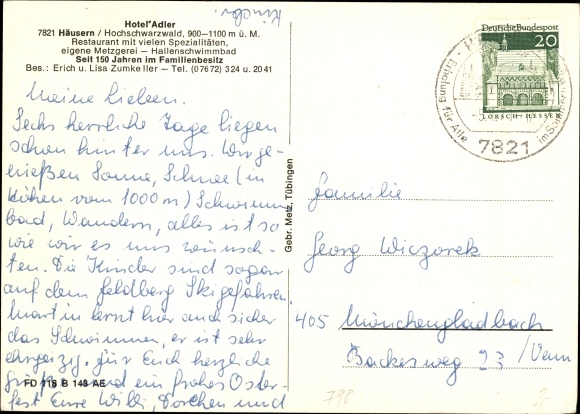 Kinder.
Hotel Adler
7821 Häusern / Hochschwarzwald, 900–1100 m ü. M.
Restaurant mit vielen Spezialitäten,
eigene Metzgerei – Hallenschwimmbad
Seit 150 Jahren im Familienbesitz
Bes.: Erich u. Lisa Zumkeller – Tel. (07672) 324 u. 2041
Meine Lieben.
Sechs herrliche Tage liegen
schon hinter uns. Wir ge-
nießen Sonne, Schnee (in
Höhen vom 1000 m) Schwimm
bad, Wandern, alles ist so
wie wir es uns wünsch-
ten. Die Kinder sind sogar
auf dem Feldberg Ski gefahren.
Martin lernt hier auch sicher
das Schwimmen, er ist sehr
ehrgeizig. Für Euch herzliche
Grüße und ein frohes Oster
fest Eure Willi, Dorchen und
FD 118 B 148 AE
Gebr. Metz, Tübingen
DeutscheBundespost
20
LORSCH-HESSEN
Erholung für Alle
im Sommer
7821
Familie
Georg Wiczorek
405 Mönchengladbach
Backesweg 23 / Venn
798